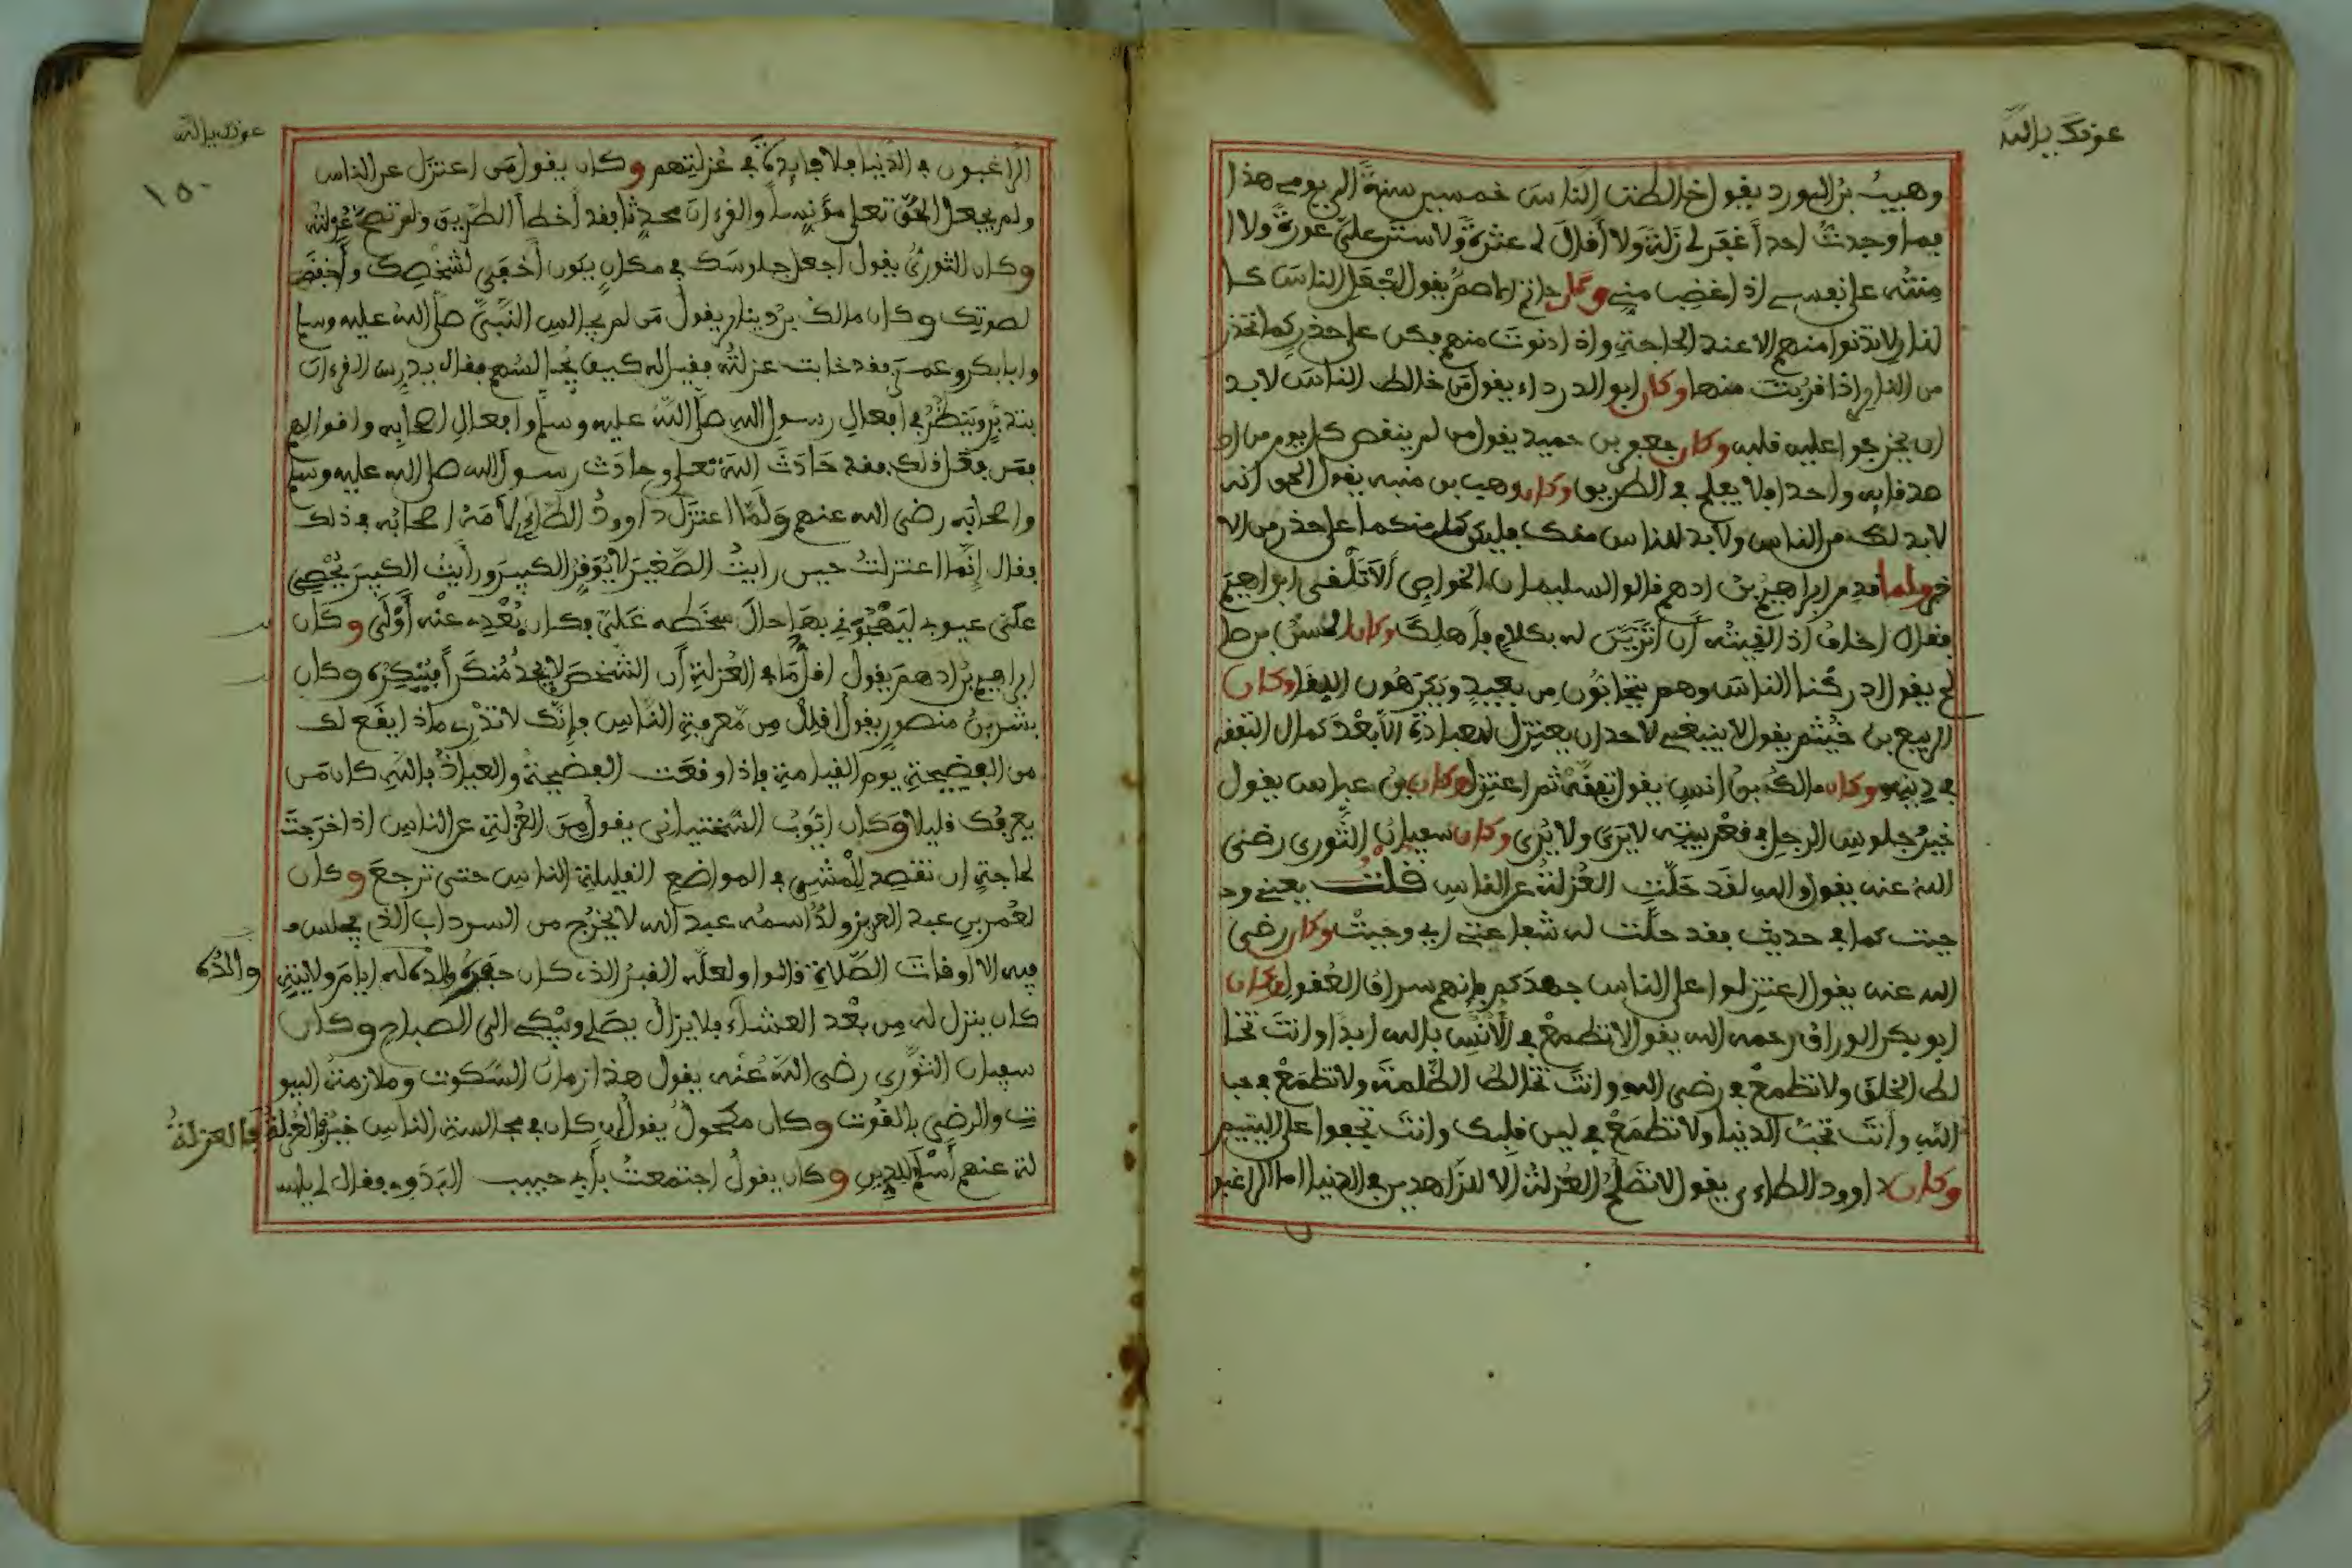 عونك يا الله
وهيب بن الورد يقول خالطت الناس خمسين سنة الى يومي هذا
فما وجدت احدا غفر لي زلة ولا أقال لي عثرة ولا ستر علي عورة ولا ا
منته على نفسي اذا غضب مني وكان حاتم الاصم يقول اجعل الناس كا
لنار ولا تدنوا منهم الا عند الحاجة واذا دنوت منهم فكن على حذر كما تحذر
من النار اذا قربت منها وكان ابو الدرداء يقول من خالط الناس لا بد
ان يخرجوا عليه قلبه وكان جعفر بن حميد يقول من لم ينقص كل يوم من ا
صدقايه واحدا فلا يفلح في الطريق وكان وهيب بن منبه يقول الحق انه
لا بد لك من الناس ولا بد للناس منك فليكن كل منكما على حذر من الا
خر ولما قدم ابراهيم بن ادهم قالوا لسليمان الخواص ألا تلقى ابراهيم
فقال اخاف اذا لقيته أن أتزين له بكلام فأهلك وكان الحسن بن صا
لح يقول ادركنا الناس وهم يتحابون من بعيد ويكرهون اللقا وكان
الربيع بن خيثم يقول لا ينبغي لاحد ان يعتزل للعبادة الا بعد كمال التفقه
في دينه وكان مالك بن انس يقول تفقه ثم اعتزل وكان بن عباس يقول
خير جلوس الرجل في قعر بيته لا يرى ولا يرى وكان سفيان الثوري رضي
الله عنه يقول والله لقد حلت العزلة عن الناس قلت يعني و
جبت كما في حديث فقد حلت له شفاعتي اي وجبت وكان رضي
الله عنه يقول اعتزلوا على الناس جهدكم فإنهم سراق العقول وكان
ابو بكر الوراق رحمه الله يقول لا تطمع في الأنس بالله ابدا وانت تخا
لط الخلق ولا تطمع في رضى الله وانت تخالط الظلمة ولا تطمع في حب
الله وأنت تحب الدنيا ولا تطمع في لين قلبك وانت تجفوا على اليتيم
وكان داوود الطاءي يقول لا تصلح العزلة الا للزاهدين في الدنيا اما الراغبو
ن
عونك يا الله
١٥٠
الراغبون في الدنيا فلا فايدة في عزلتهم وكان يقول من اعتزل عن الناس
ولم يجعل الحق تعلى مؤنسا والقرءان محدثا فقد أخطأ الطريق ولم تصح عزلته
وكان الثوري يقول اجعل جلوسك في مكان يكون أخفى لشخصك وأخفض
لصوتك وكان مالك بن دينار يقول من لم يجالس النبي صلى الله عليه وسلم
وابا بكر وعمر فقد خابت عزلته فقيل له كيف يجالسهم فقال يدرس القرءان
يتدبر وينظر في افعال رسول الله صلى الله عليه وسلم وافعال اصحابه واقوالهم
فمن فعل ذلك فقد حادث الله تعلى وحادث رسول الله صلى الله عليه وسلم
واصحابه رضي الله عنهم ولما اعتزل داوود الطاءي لامه اصحابه في ذلك
فقال إنما اعتزلت حين رايت الصغير لا يوقر الكبير ورأيت الكبير يحصي
علي عيوبي ليهجوني بها حال سخطه علي فكان بعدي عنه أولى وكان
ابراهيم بن ادهم يقول اقل ما في العزلة أن الشخص لا يجد منكرا فينكره وكان
بشر بن منصور يقول أقلل من معرفة الناس فإنك لا تدري ماذا يقع لك
من الفضيحة يوم القيامة فإذا وقعت الفضيحة والعياذ بالله كان من
يعرفك قليلا وكان ايوب السختياني يقول من العزلة عن الناس اذا خرجت
لحاجة ان تقصد للمشي في المواضع القليلة الناس حتى ترجع وكان
لعمر بن عبد العزيز ولد اسمه عبد الله لا يخرج من السرداب الذي يجلس
فيه الا اوقات الصلاة قالوا ولعله القبر الذي كان حفره والده له ايام ولايته
والده
كان ينزل له من بعد العشاء فلا يزال يصلي ويبكي الى الصباح وكان
سفيان الثوري رضي الله عنه يقول هذا زمان السكوت وملازمة البيو
ت والرضى بالقوت وكان مكحول يقول إن كان في مجالسة الناس خير فالعزلة
فالعزلة
لة عنهم أسلم للدين وكان يقول اجتمعت بأبي حبيب البدوي فقال لي يا